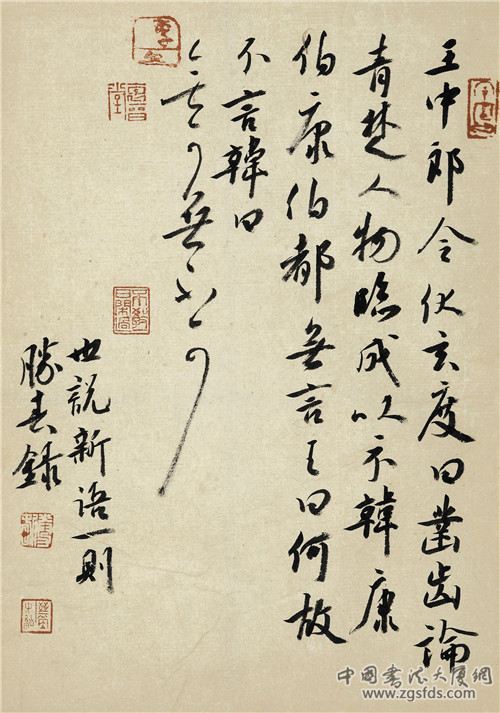 王中郎令伏玄度曰鑿齒論
青楚人物臨成以示韓康
伯康伯都無言王曰何故
不言韓曰
無可無不可
世說新語一則
勝錄
中國書法大厦網
www.zgsfds.com